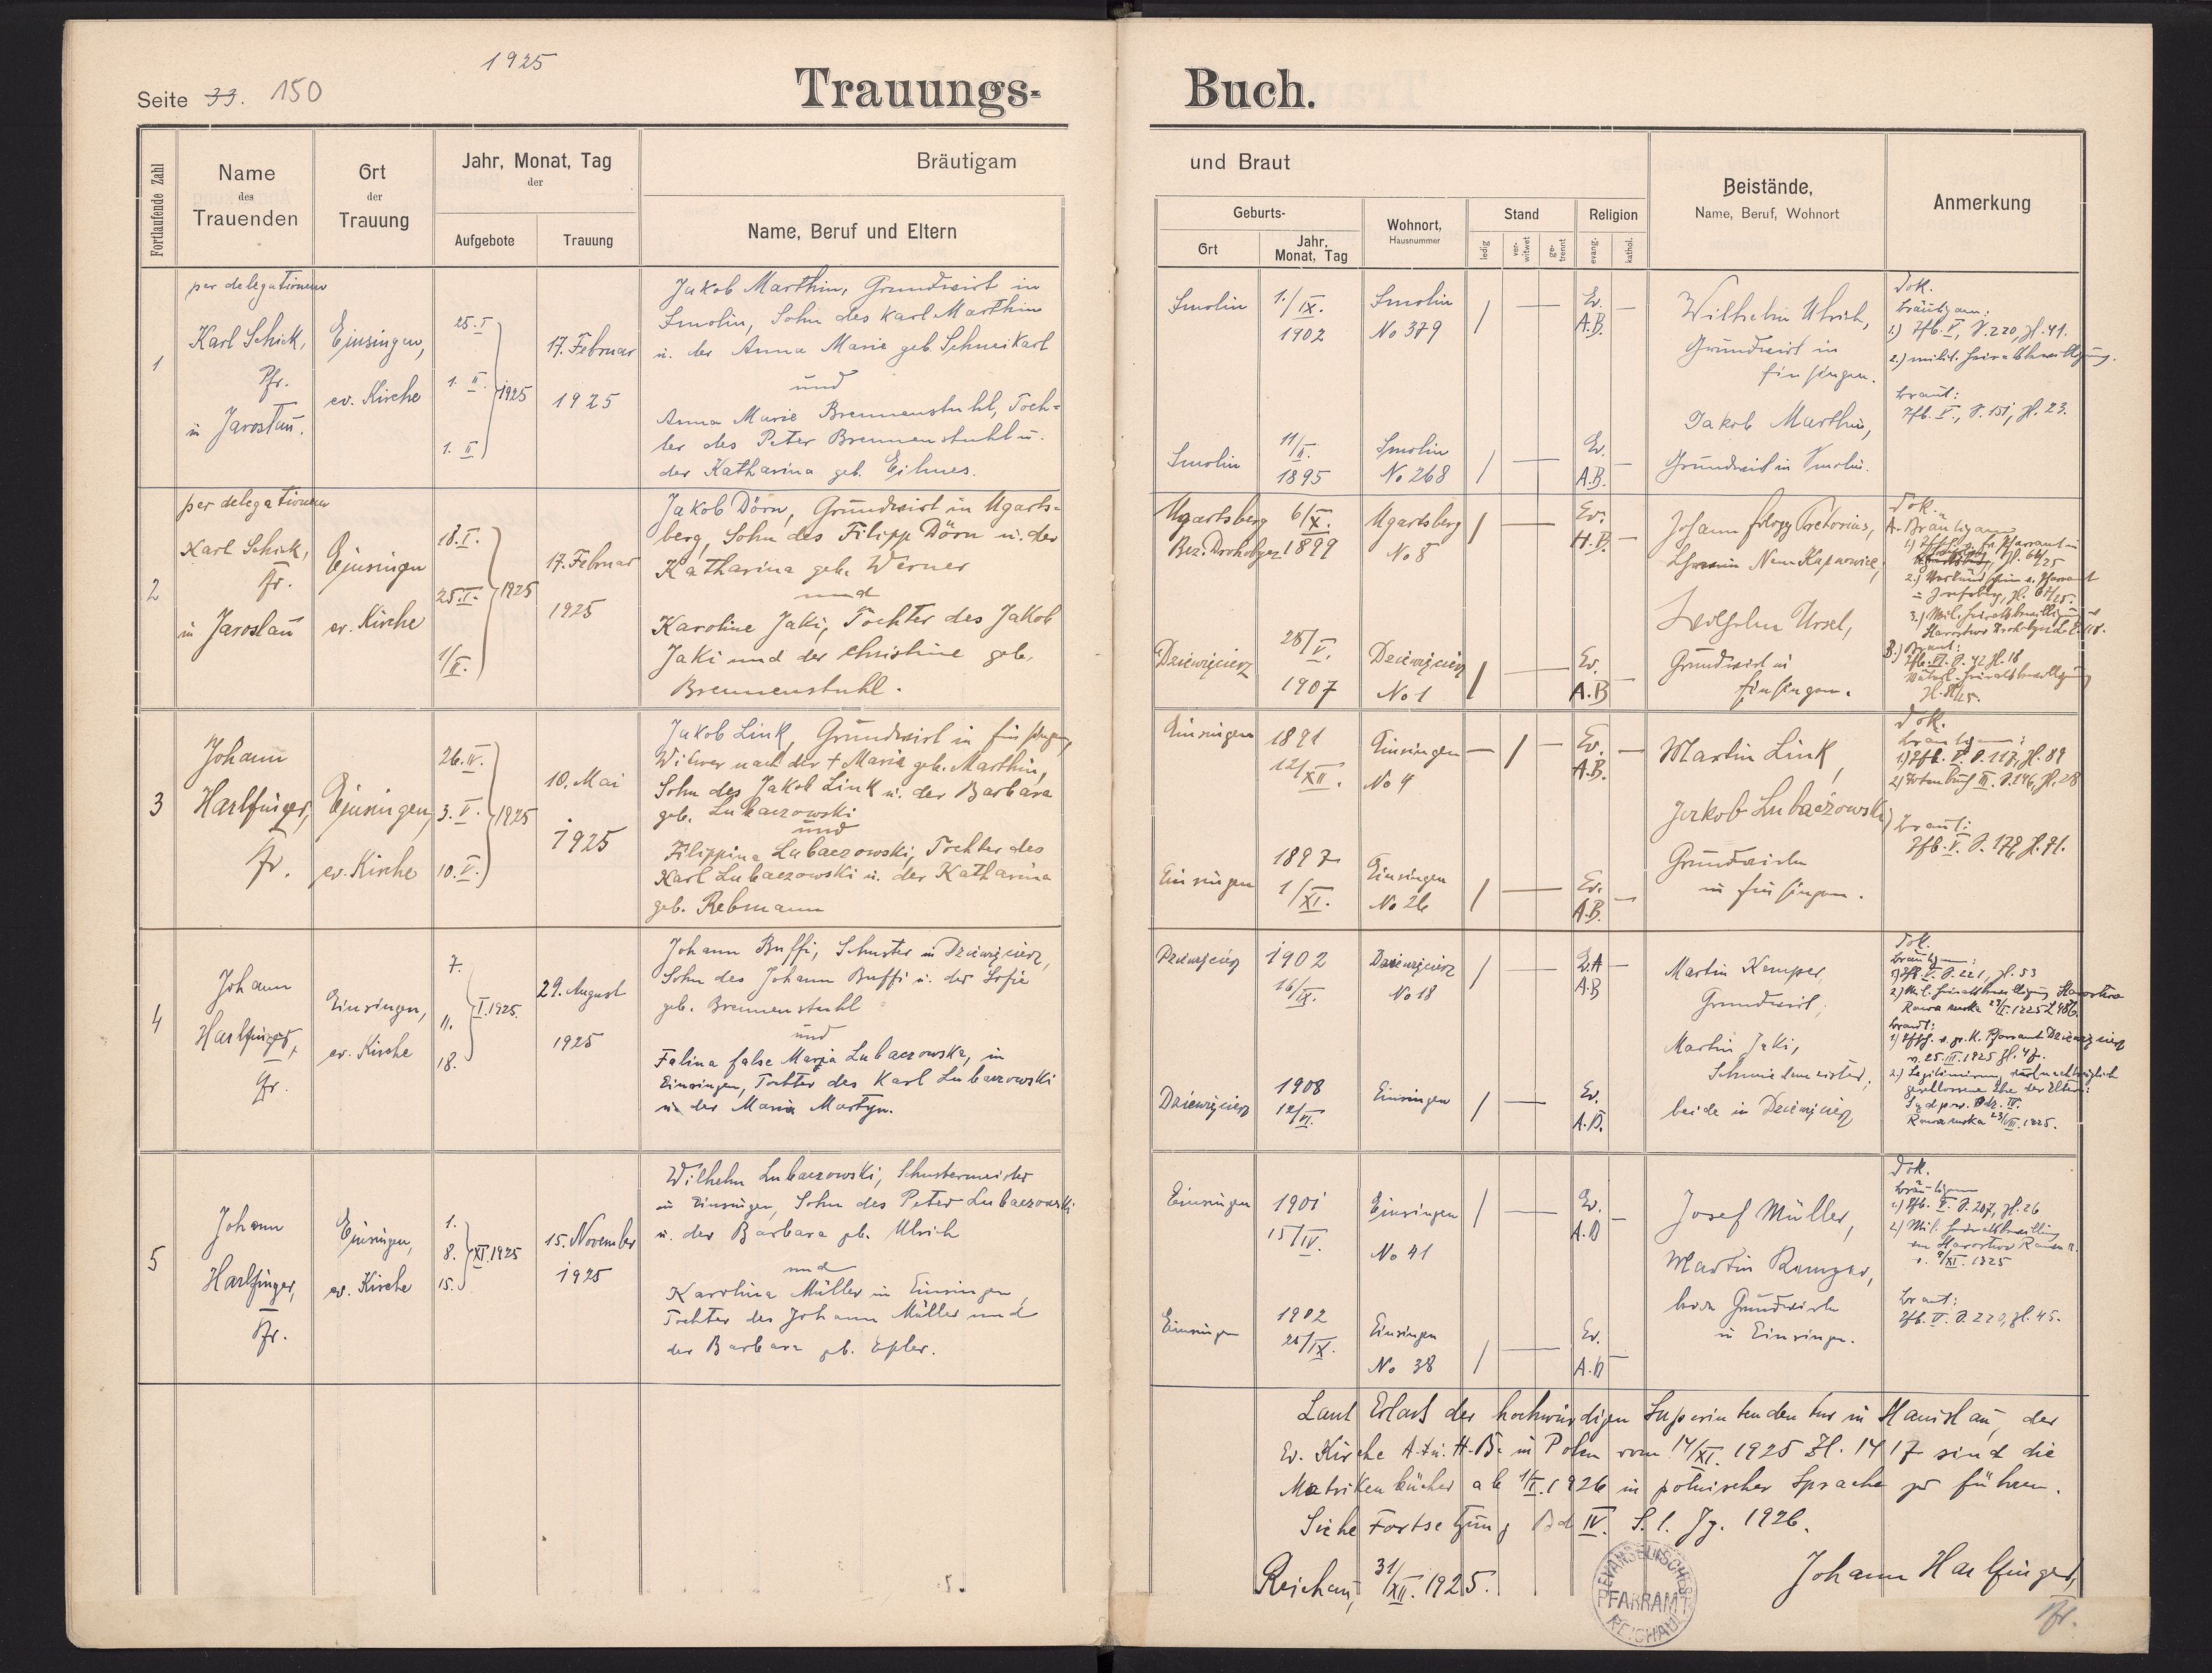 1925
Seite 33. 150
Trauungs- Buch.
Fortlaufende Zahl
Name
des
Trauenden
Ort
der
Trauung
Jahr, Monat, Tag
der
Aufgebote
Trauung
Bräutigam und Braut
Name, Beruf und Eltern
Geburts-
Ort
Jahr,
Monat, Tag
Wohnort,
Hausnummer
Stand
ledig
ver-
witwet
ge-
trennt
Religion
evang.
kathol.
Beistände,
Name, Beruf, Wohnort
Anmerkung
1
per delegationem
Karl Schick,
Pfr.
in Jaroslau.
Einsingen,
ev. Kirche
25. I
1. II.
1. II
1925
17. Februar
1925
Jakob Marthin, Grundwirt in
Smolin, Sohn des Karl Marthin
u. der Anna Marie geb. Schweikart
und
Anna Marie Brennenstuhl, Toch-
ter des Peter Brennenstuhl u.
der Katharina geb. Eilmes.
Smolin
1./IX.
1902
Smolin
No 379
Ev.
A.B.
Smolin
11/II.
1895
Smolin
No 268
Ev.
A.B.
Wilhelm Ulrich,
Grundwirt in
Einsingen.
Jakob Marthin,
Grundwirt in Smolin.
Dok.
Bräutigam:
1.) Tfb. V, S. 220, Zl. 41.
2.) milit. Heiratsbewilligung.
Braut:
Tfb. V., S. 151, Zl. 23.
2
per delegationem
Karl Schick,
Pfr.
in Jaroslau
Einsingen
ev. Kirche
18. I.
25. I.
1/II.
1925
17. Februar
1925
Jakob Dörn, Grundwirt in Ugarts-
berg, Sohn des Filipp Dörn u. der
Katharina geb. Werner
und
Karoline Jaki, Tochter des Jakob
Jaki und der Christine geb.
Brennenstuhl.
Ugartsberg
Bez. Drohobycz
6/X.
1899
Ugartsberg
No 8
Ev.
H.B.
Dziewięcierz
28/V.
1907
Dziewięcierz
No 1
Ev.
A.B
Johann Pretorius,
Grundwirt in
Einsingen.
Dok.
A. Bräutigam
B.) Braut:
Tfb. VI. S. 42 Zl. 18
3
Johann
Harlfinger,
Pfr.
Einsingen,
ev. Kirche
26. IV.
3. V.
10. V.
1925
10. Mai
1925
Jakob Link, Grundwirt in Einsingen,
Witwer nach der † Marie geb. Marthin,
Sohn des Jakob Link u. der Barbara
geb. Lubaczowski
und
Filippina Lubaczowski, Tochter des
Karl Lubaczowski u. der Katharina
geb. Rebmann
Einsingen
1891
12/XII.
Einsingen
No 4
Ev.
A.B.
Einsingen
1897
1/XI.
Einsingen
No 26
Ev.
A.B.
Martin Link,
Jakob Lubaczowski,
Grundwirte
in Einsingen.
Dok.
Bräutigam:
1) Tfb. V. S. 117, Zl. 89
2) Totenbuch III. S. 146, Zl. 28
Braut:
Tfb. V. S. 178, Zl. 71.
4
Johann
Harlfinger,
Pfr.
Einsingen,
ev. Kirche
7.
11.
18.
I. 1925.
29. August
1925
Johann Buffi, Schuster in Dziewięcierz,
Sohn des Johann Buffi u. der Sofie
geb. Brennenstuhl
und
Falina false Marja Lubaczowska, in
Einsingen, Tochter des Karl Lubaczowski
u. der Maria Martyn.
Dziewięcierz
1902
16/IX.
Dziewięcierz
No 18
A.B
Dziewięcierz
1908
12/VI.
Einsingen
Ev.
A.B.
Martin Kemper,
Grundwirt,
Martin Jaki,
Schmiedemeister,
beide in Dziewięcierz
Dok.
Bräutigam:
1) Tfb. V. S. 221, Zl. 53
2) Mil. Heiratsbewilligung Starostwo
Braut:
v. 25. III. 1925 Zl. 47.
2.) Legitimierung durch nachträglich
geschlossene Ehe der Eltern:
Rawa ruska 23/VIII. 1925.
5
Johann
Harlfinger,
Pfr.
Einsingen,
ev. Kirche
1.
8.
15.
XI. 1925
15. November
1925
Wilhelm Lubaczowski, Schustermeister
in Einsingen, Sohn des Peter Lubaczowski
u. der Barbara geb. Ulrich
und
Karolina Müller in Einsingen,
Tochter des Johann Müller und
der Barbara geb. Epler.
Einsingen
1901
15/IV.
Einsingen
No 41
Ev.
A.B
Einsingen
1902
Einsingen
No 38
Ev.
A.B
Josef Müller,
Martin Kemper,
beide Grundwirte
in Einsingen.
Dok.
Bräutigam
1.) Tfb. V. S. 207, Zl. 26
2.) Mil. Heiratsbewilling
v. 9/XI. 1925
Braut:
Tfb. V. S. 220, Zl. 45.
Laut Erlaß der hochwürdigen Superintendentur in Stanislau, der
Ev. Kirche A. u. H. B. in Polen vom 14/XI. 1925 Zl. 1417 sind die
Matrikenbücher ab 1/I. 1926 in polnischer Sprache zu führen.
Siehe Fortsetzung Bd IV. S. 1. Jg. 1926.
Reichau, 31/XII. 1925.
Johann Harlfinger,
Pfr.
EVANGELISCHES
PFARRAMT
REICHAU